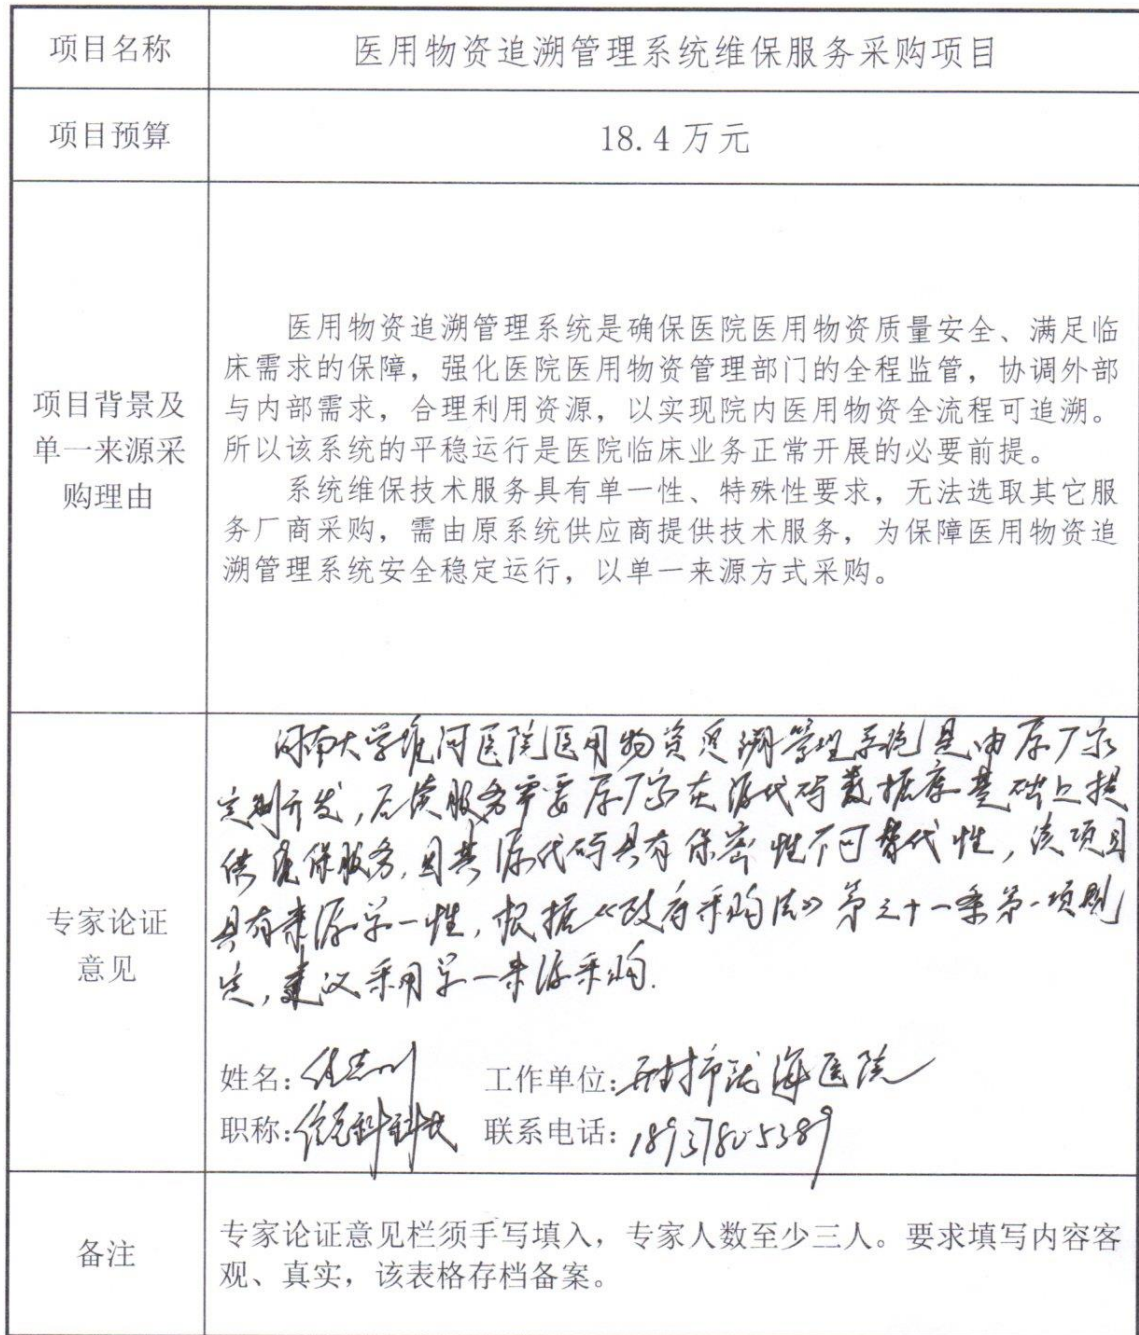 项目名称
医用物资追溯管理系统维保服务采购项目
项目预算
18.4万元
项目背景及
单一来源采
购理由
医用物资追溯管理系统是确保医院医用物资质量安全、满足临
床需求的保障，强化医院医用物资管理部门的全程监管，协调外部
与内部需求，合理利用资源，以实现院内医用物资全流程可追溯。
所以该系统的平稳运行是医院临床业务正常开展的必要前提。
系统维保技术服务具有单一性、特殊性要求，无法选取其它服
务厂商采购，需由原系统供应商提供技术服务，为保障医用物资追
溯管理系统安全稳定运行，以单一来源方式采购。
专家论证
意见
河南大学淮河医院医用物资追溯管理系统是由原厂家
定制开发，后续服务需要原厂家在源代码数据库基础上提
供维保服务，因其源代码具有保密性不可替代性，该项目
具有来源单一性，根据《政府采购法》第三十一条第一项规
定，建议采用单一来源采购.
姓名：任志川 工作单位：开封市陇海医院
职称：信息科科长 联系电话：18937805389
备注
专家论证意见栏须手写填入，专家人数至少三人。要求填写内容客
观、真实，该表格存档备案。